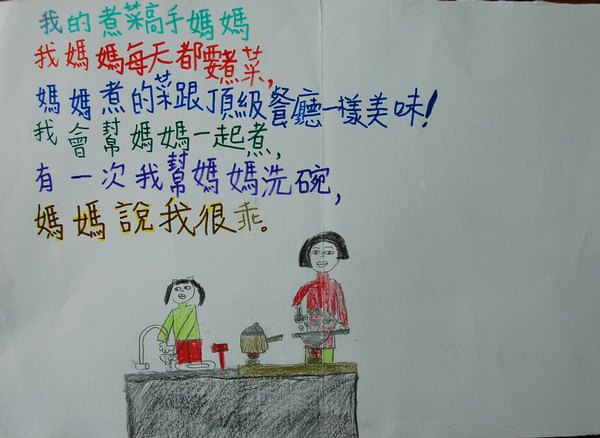 我的煮菜高手媽媽
我媽媽每天都要煮菜,
媽媽煮的菜跟頂級餐廳一樣美味!
我會幫媽媽一起煮,
有一次我幫媽媽洗碗,
媽媽說我很乖。